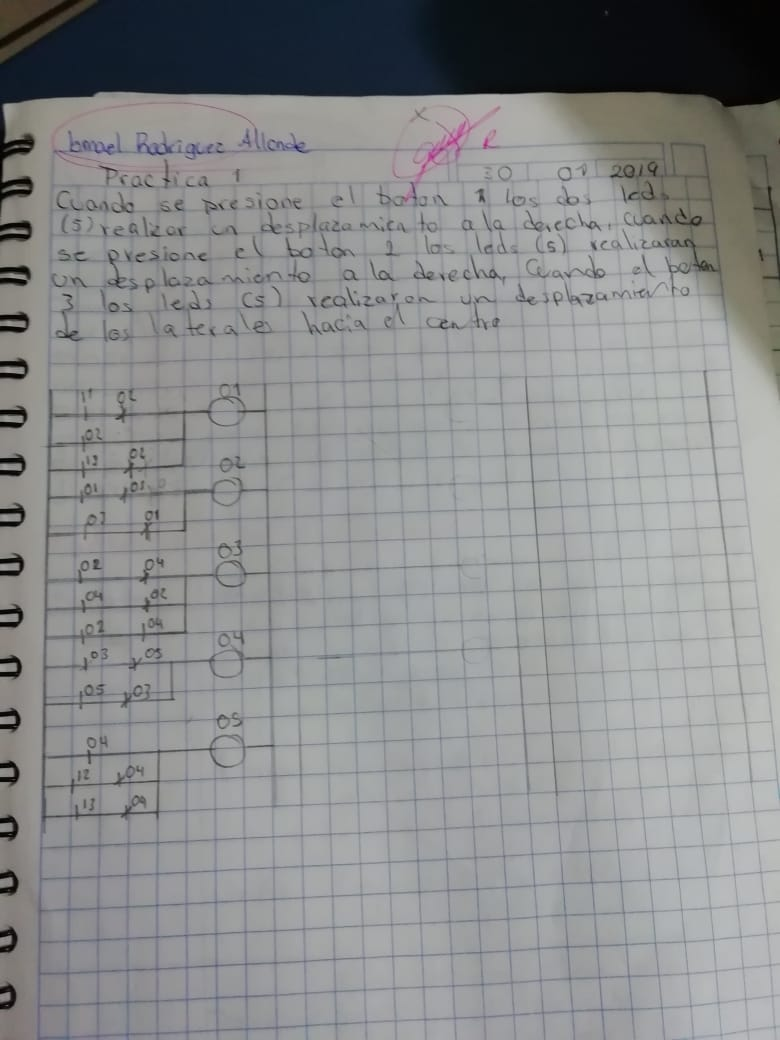 Ismael Rodriguez Allende
Practica 1
30 01 2019
Cuando se presione el boton 1 los dos leds
(5) realizar un desplazamiento a la derecha, cuando
se presione el boton 2 los leds (5) realizaran
un desplazamiento a la derecha, Cuando el boton
3 los leds (5) realizaran un desplazamiento
de los laterales hacia el centro
11 02 01
02
13 02 02
01 03
03 01
02 04 03
04 02
02 04 04
03 05
05 03 05
04
12 04
13 04